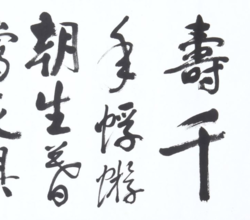 壽千
年蜉蝣
朝生暮